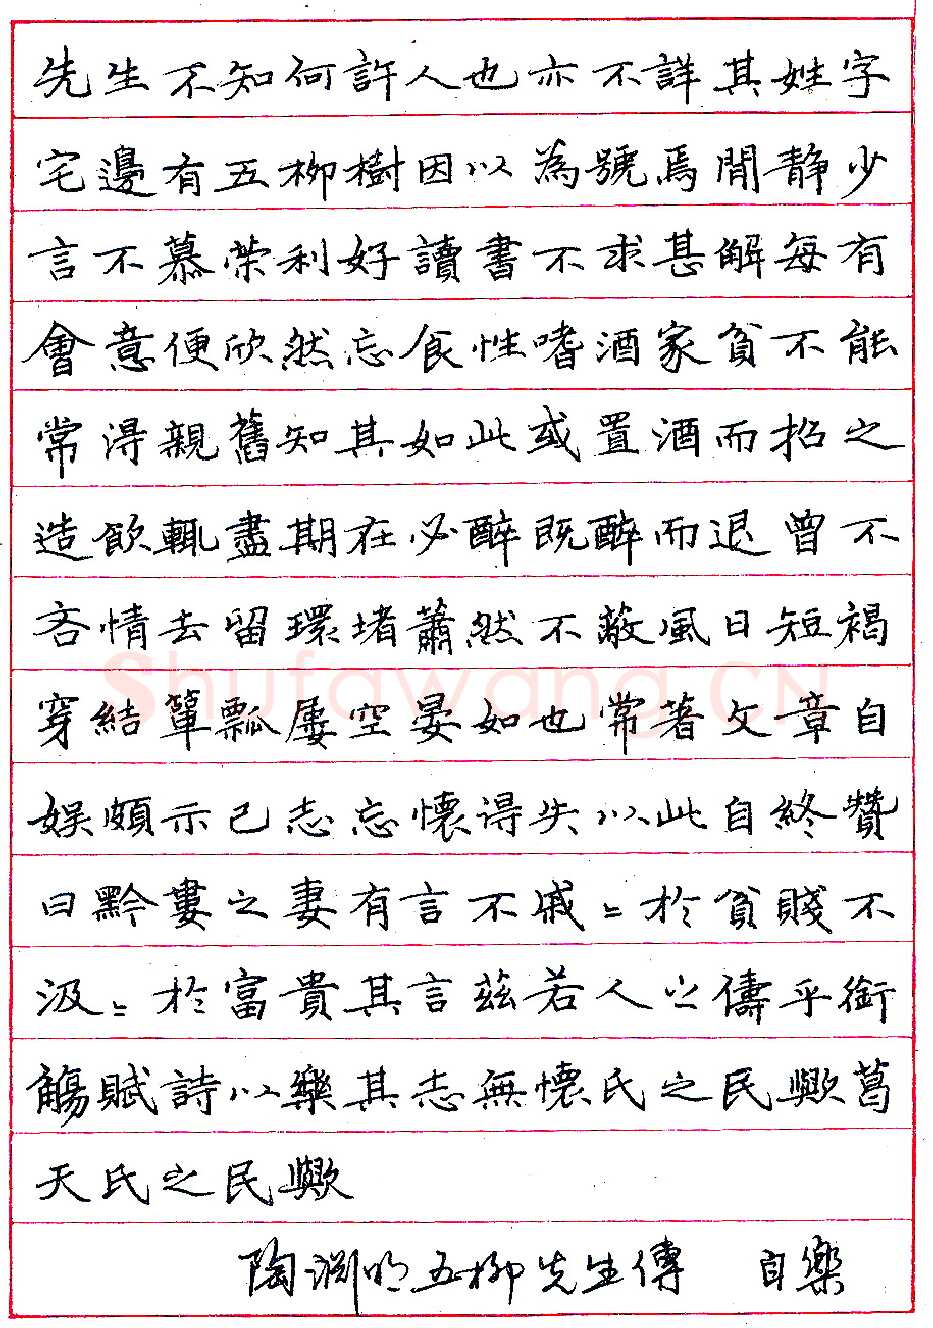 先生不知何許人也亦不詳其姓字
宅邊有五柳樹因以為號焉閒靜少
言不慕榮利好讀書不求甚解每有
會意便欣然忘食性嗜酒家貧不能
常得親舊知其如此或置酒而招之
造飲輒盡期在必醉既醉而退曾不
吝情去留環堵蕭然不蔽風日短褐
穿結簞瓢屢空晏如也常著文章自
娛頗示己志忘懷得失以此自終贊
曰黔婁之妻有言不戚〻於貧賤不
汲〻於富貴其言茲若人之儔乎銜
觴賦詩以樂其志無懷氏之民歟葛
天氏之民歟
陶淵明五柳先生傳 自樂
Shufawang.CN